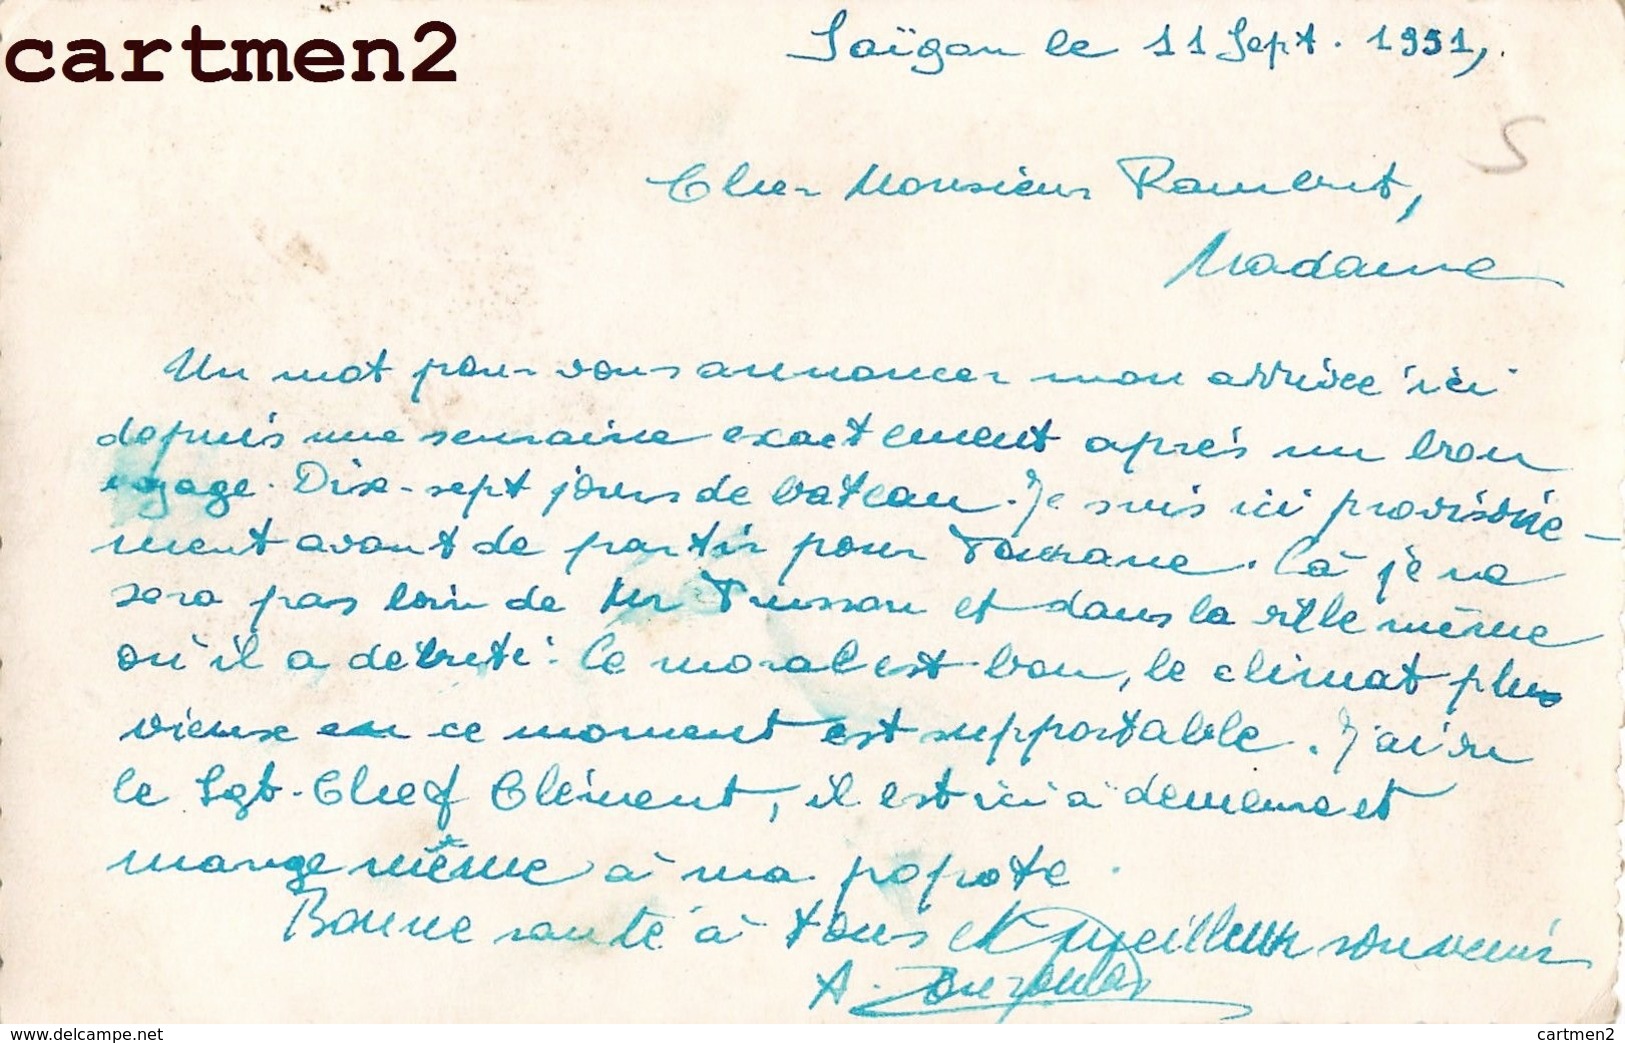 cartmen2
Saïgon le 11 Sept. 1951,
S
Cher Monsieur Rambert,
Madame
Un mot pour vous annoncer mon arrivée ici
depuis une semaine exactement après un bon
voyage. Dix-sept jours de bateau. Je suis ici provisoire-
ment avant de partir pour Tourane. Là je ne
sera pas loin de Mr Tusson et dans la ville même
où il a débuté. Le moral est bon, le climat plu
vieux en ce moment est supportable. J'ai vu
le Sgt-Chef Clément, il est ici à demeure et
mange même à ma popote.
Bonne santé à tous et meilleur souvenir
A.
delcampe.net
cartmen2